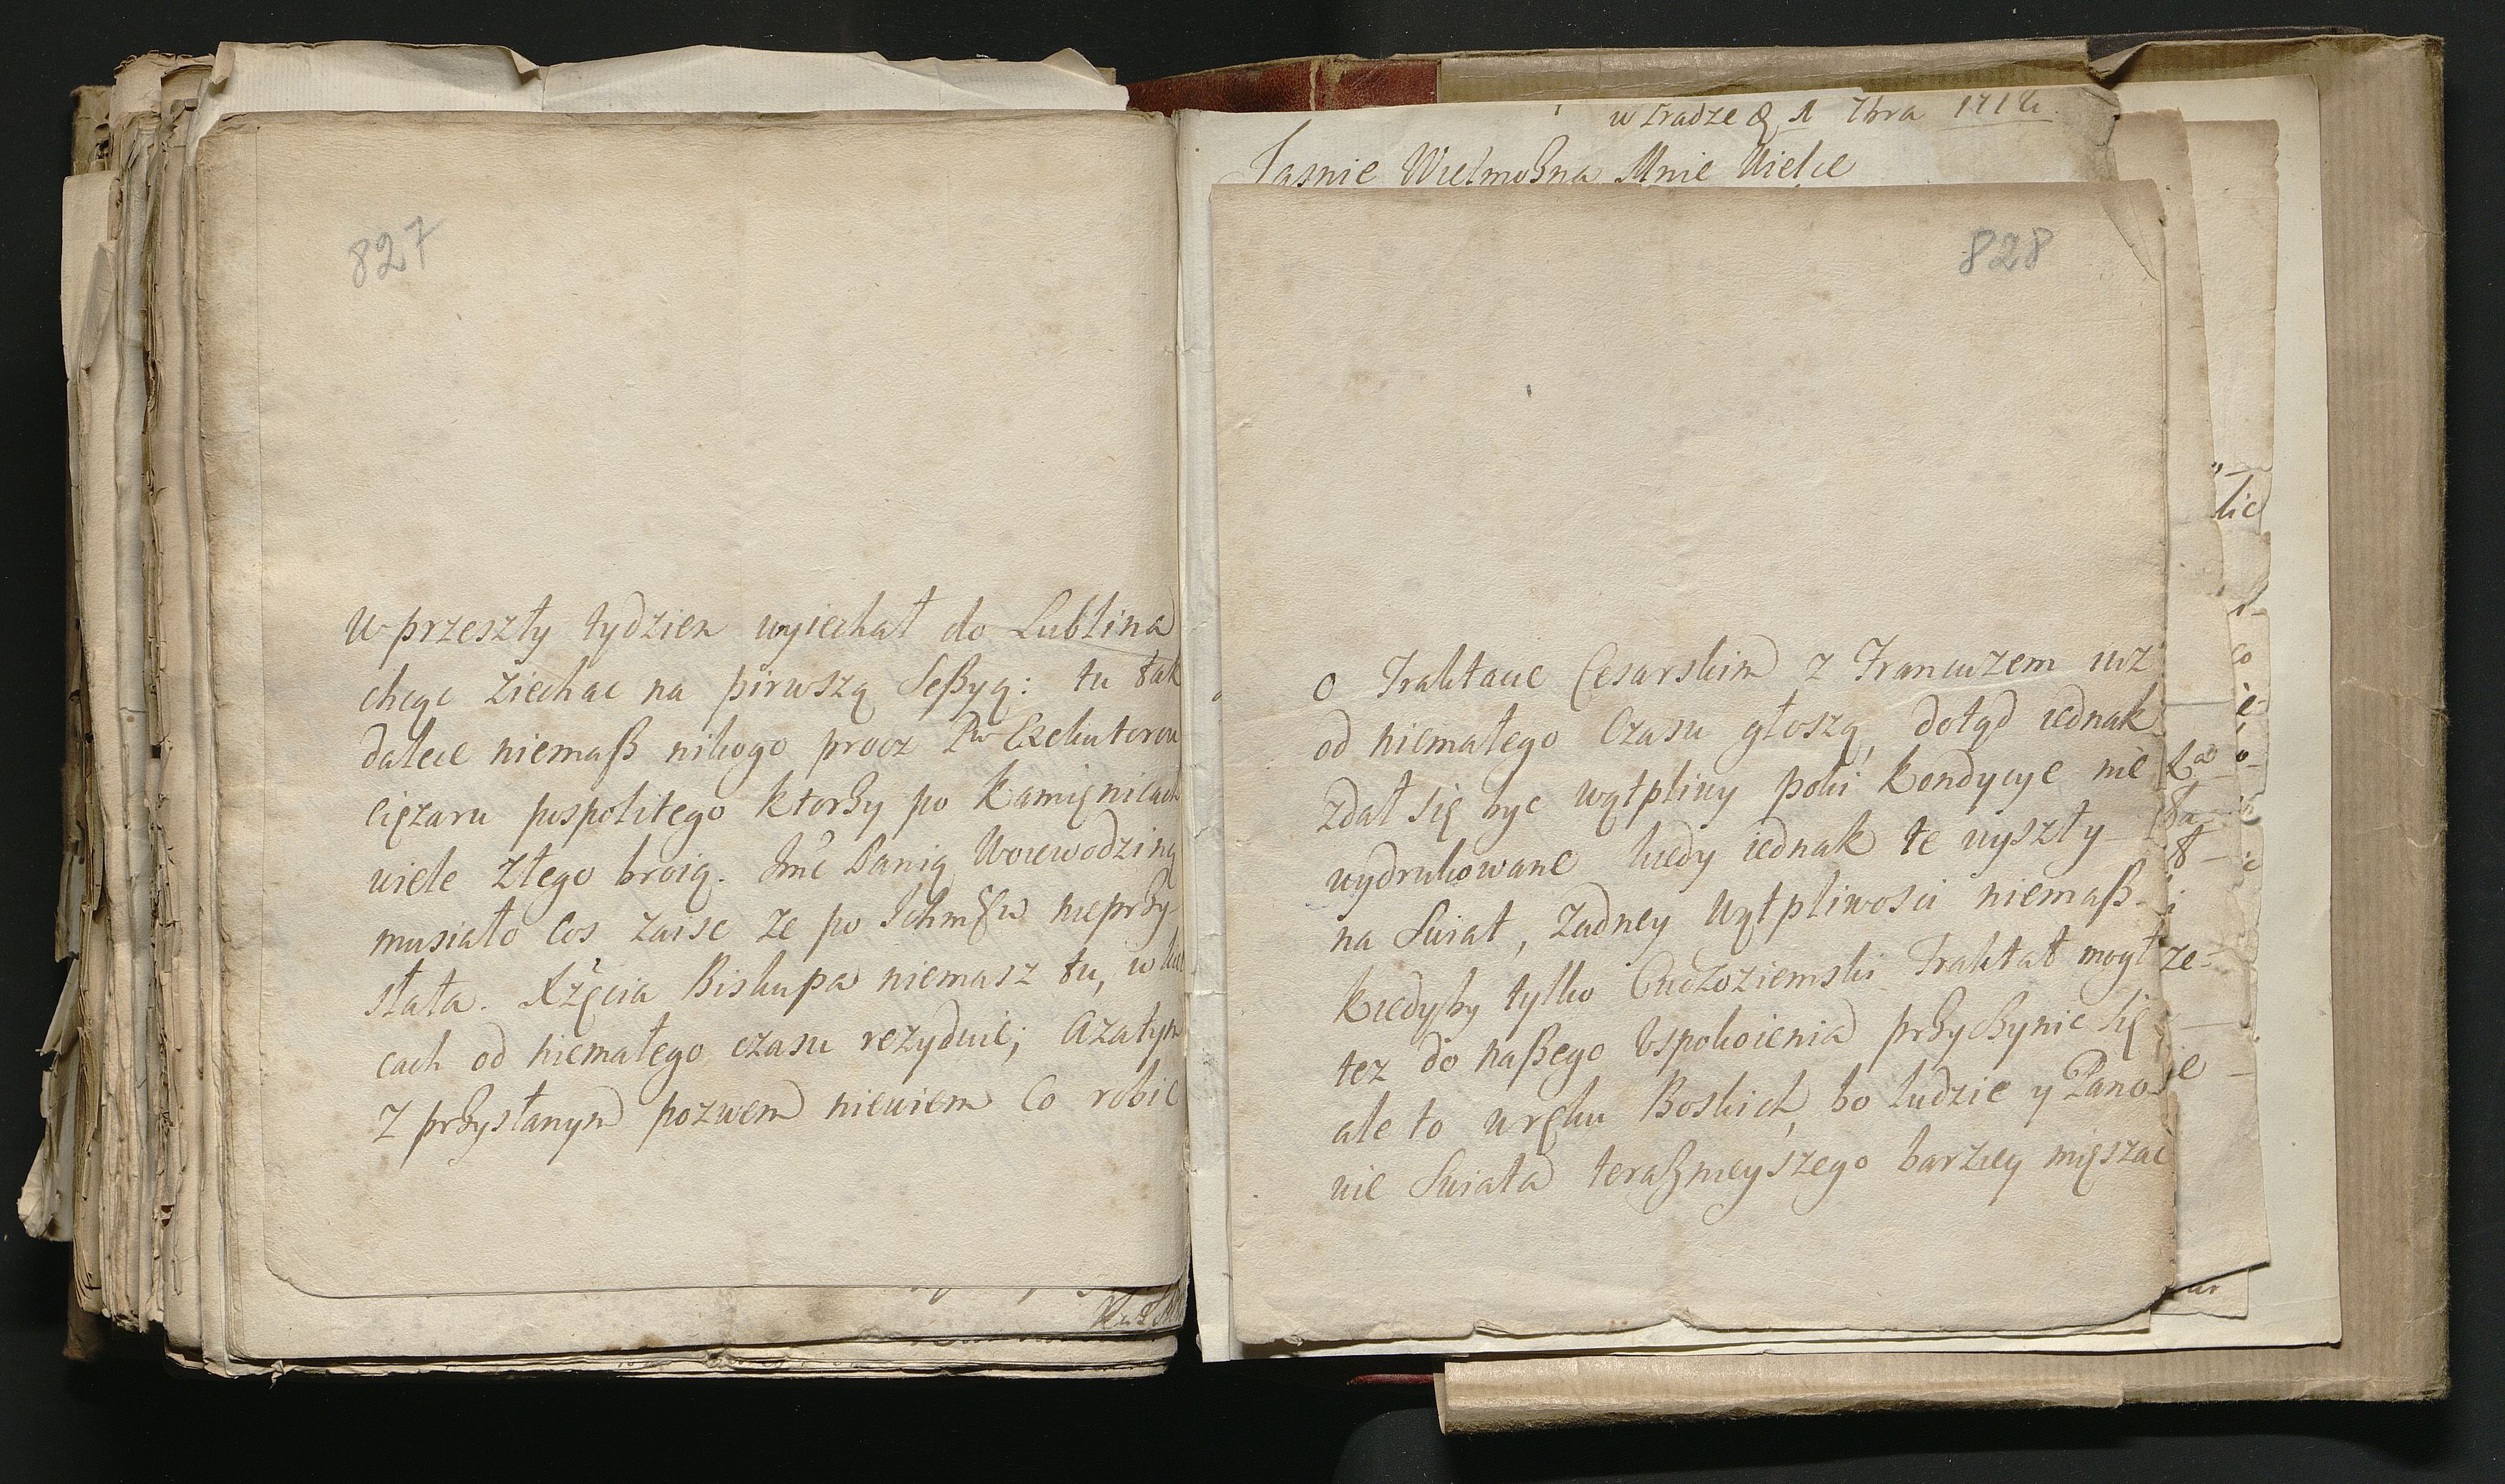 827
W przeszły tydzien wyiechał do Lublina
chcąc ziechac na pirwszą Seßyą: tu tak
dalece niemaß nikogo procz Pw Exekutorow
cięzaru pospolitego ktorzy po kamięnicach
wiele złego broią. Imć Panią Woiewodziną
musiało cos zaisc ze po Ichmców nieprzy-
słała. Xżęcia Biskupa niemasz tu, w
cach od niemałego czasu rezyduie; Azatym
z przysłanym pozwem niewiem co robic
w Pradze 1 7bra 1714
Jasnie Wielmozna Mnie Wielce
828
o Traktacie Cesarskim z Francuzem iuz
od niemałego Czasu głoszą, dotąd iednak
zdał się byc wątpliwy poki kondycye nie
wydrukowane kiedy iednak te wyszły
na Swiat, Zadney wątpliwosci niemaß.
kiedyby tylko Cudzoziemski Traktat mogł
tez do naßego Uspokoienia przyczynic się
ale to w ręku Boskich, bo ludzie y Pano-
wie Swiata terazneyszego barziey mięszac